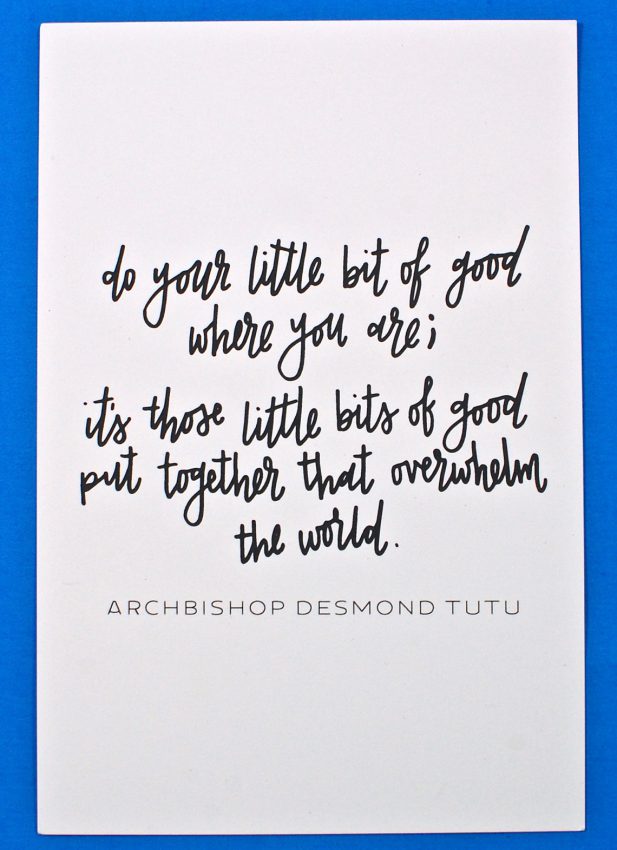 do your little bit of good
where you are;
it's those little bits of good
put together that overwhelm
the world.
ARCHBISHOP DESMOND TUTU